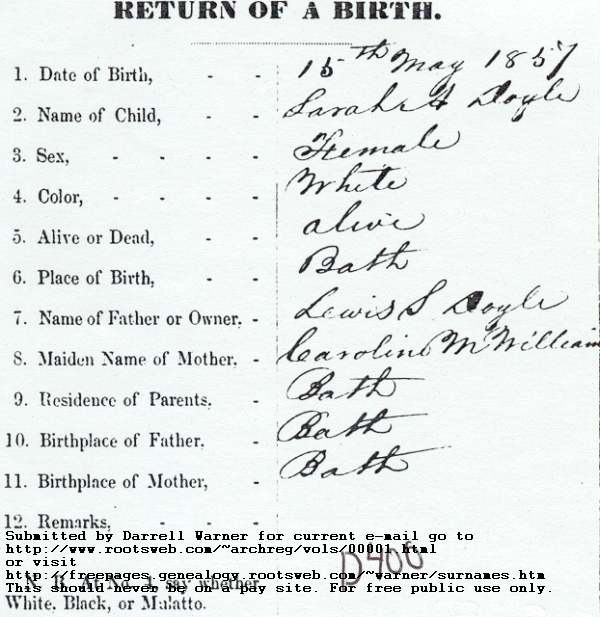 RETURN OF A BIRTH.
1. Date of Birth, - - 15th May 1857
2. Name of Child, - - Sarah A Doyle
3. Sex, - - - - Female
4. Color, - - - White
5. Alive or Dead, - - alive
6. Place of Birth, - - Bath
7. Name of Father or Owner, - Lewis S Doyle
8. Maiden Name of Mother, - Caroline M William
9. Residence of Parents, - Bath
10. Birthplace of Father, - Bath
11. Birthplace of Mother, - Bath
12. Remarks, - - -
Submitted by Darrell Warner for current e-mail go to
http://www.rootsweb.com/~archreg/vols/00001.html
or visit
http://freepages.genealogy.rootsweb.com/~warner/surnames.htm
N. B. At No. 4, say whether
D400
This should never be on a pay site. For free public use only.
White, Black, or Mulatto.